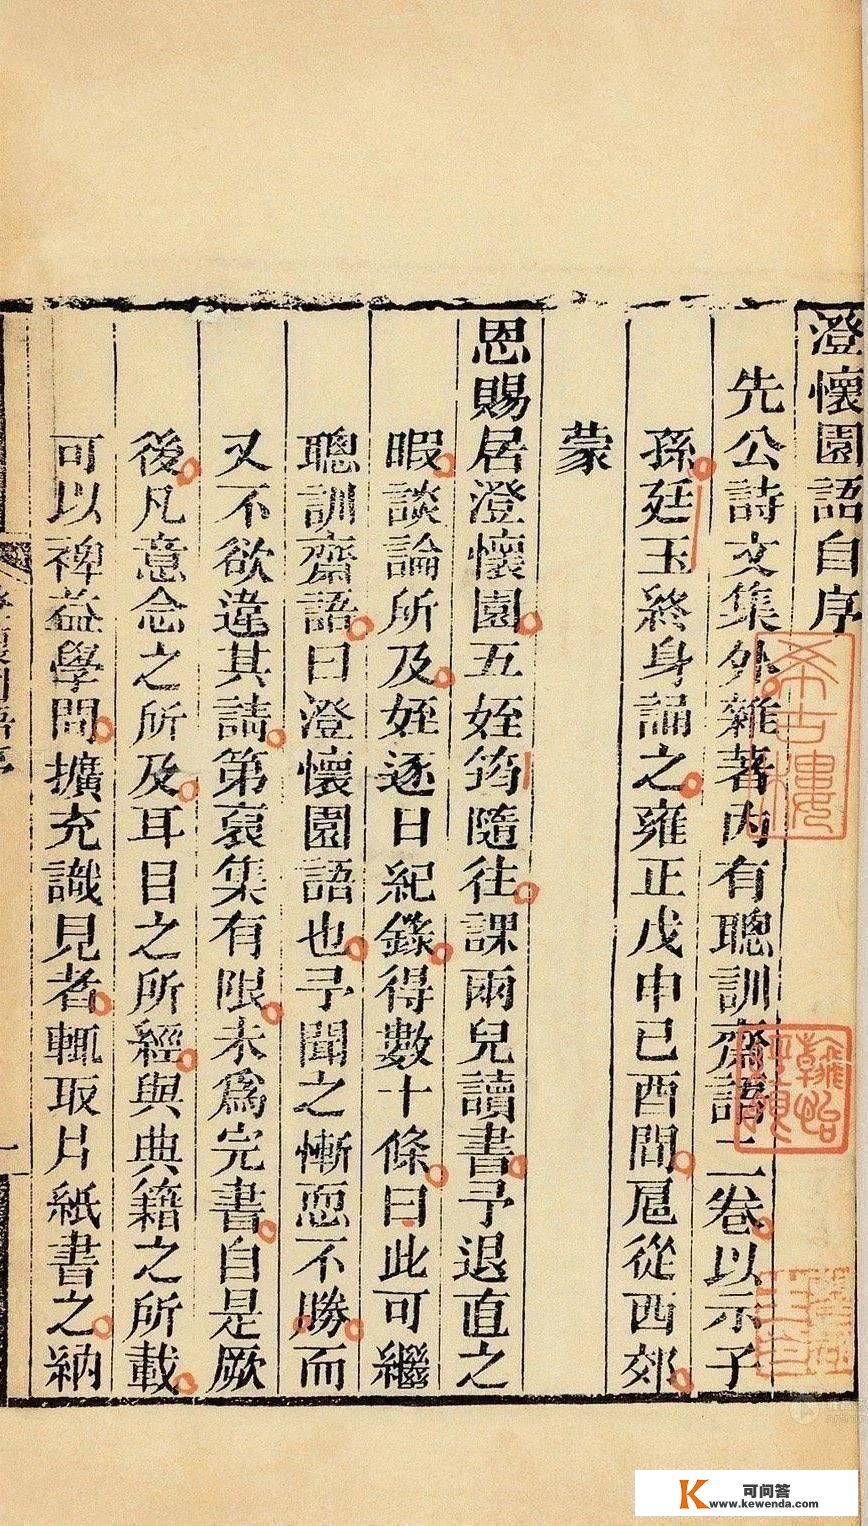 澄懷園語自序
先公詩文集外雜著內有聰訓齋語二卷以示子
孫廷玉終身誦之雍正戊申己酉間扈從西郊
蒙
恩賜居澄懷園五姪筠隨往課兩兒讀書予退直之
暇談論所及姪逐日紀錄得數十條曰此可繼
聰訓齋語曰澄懷園語也予聞之慚恧不勝而
又不欲違其請第裒集有限未爲完書自是厥
後凡意念之所及耳目之所經與典籍之所載
可以裨益學問擴充識見者輒取片紙書之納
希古樓
可问答
www.kewenda.com